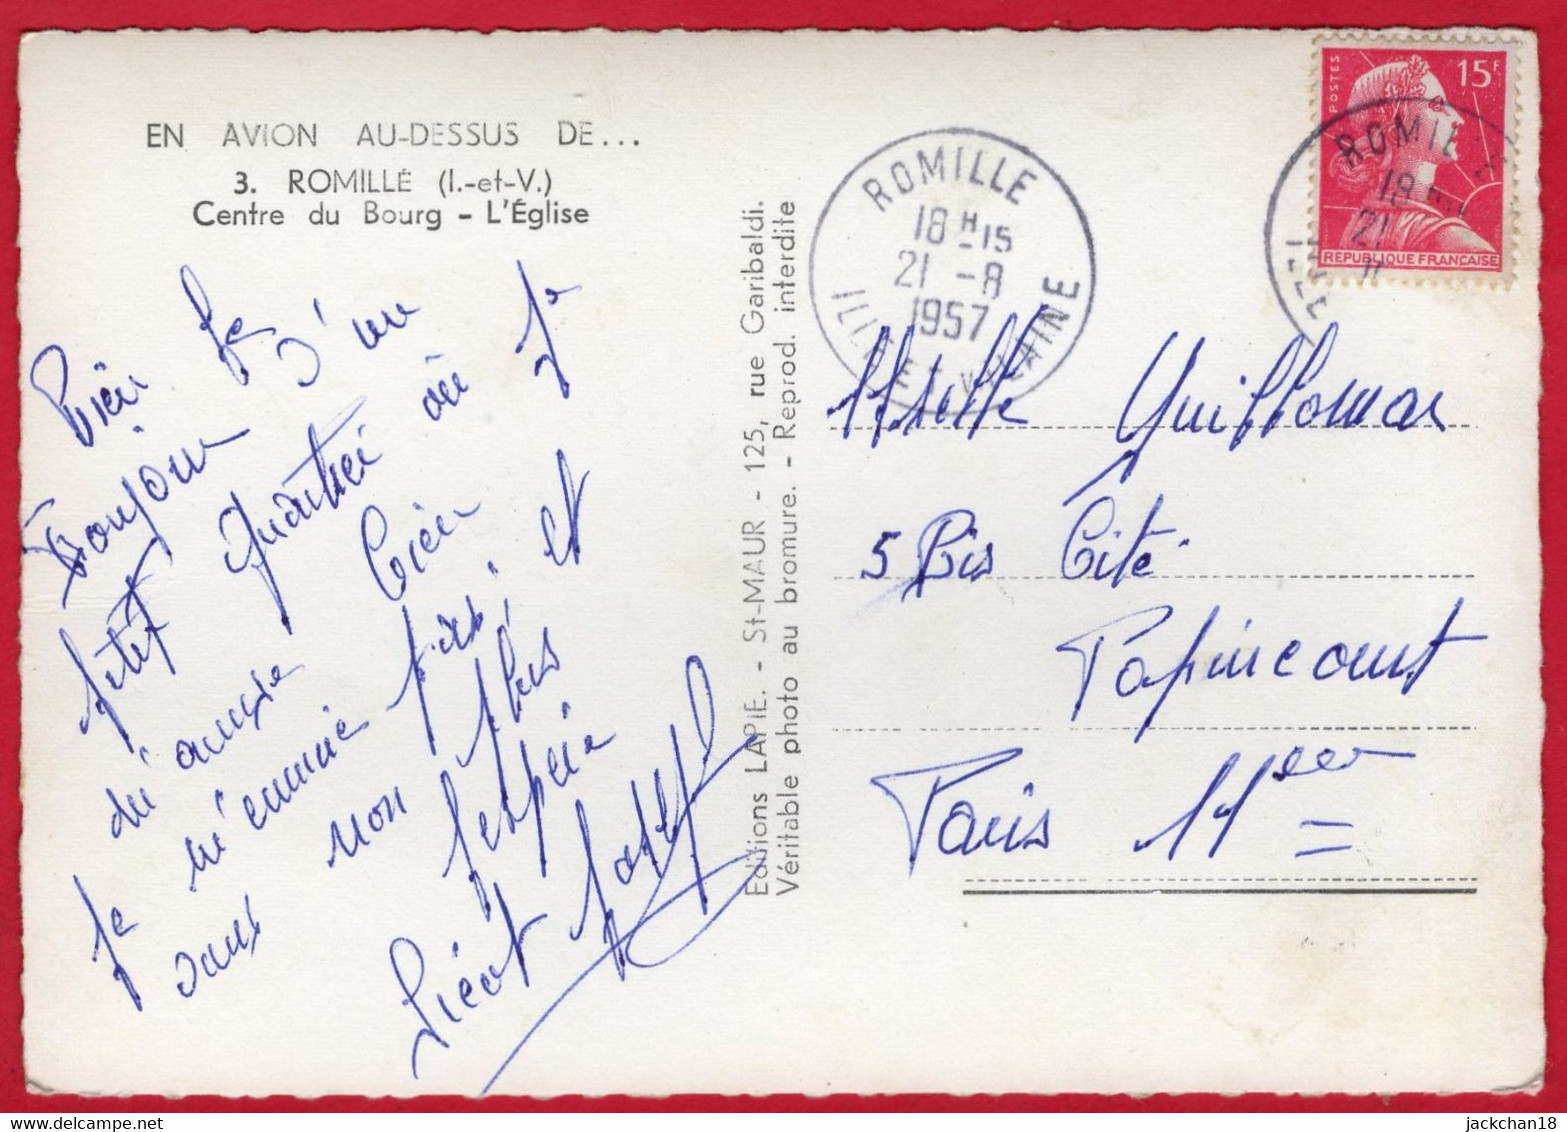 EN AVION AU-DESSUS DE...
3. ROMILLÉ (I.-et-V.)
Centre du Bourg - L'Église
Bien le
Bonjour d'un
petit quartier où je
je
bien et
pas, et
sans non plus
J'espère
Editions LAPIE. - St-MAUR - 125, rue Garibaldi.
Véritable photo au bromure. - Reprod. interdite
ROMILLE
18 H 15
21 - 8
1957
ILLE-ET-VILAINE
POSTES
15F
REPUBLIQUE FRANCAISE
ROMIL
18 H
21
ILLE
Mselle Guillomar
5 Bis Cité
Popincourt
Paris 11
jackchan18